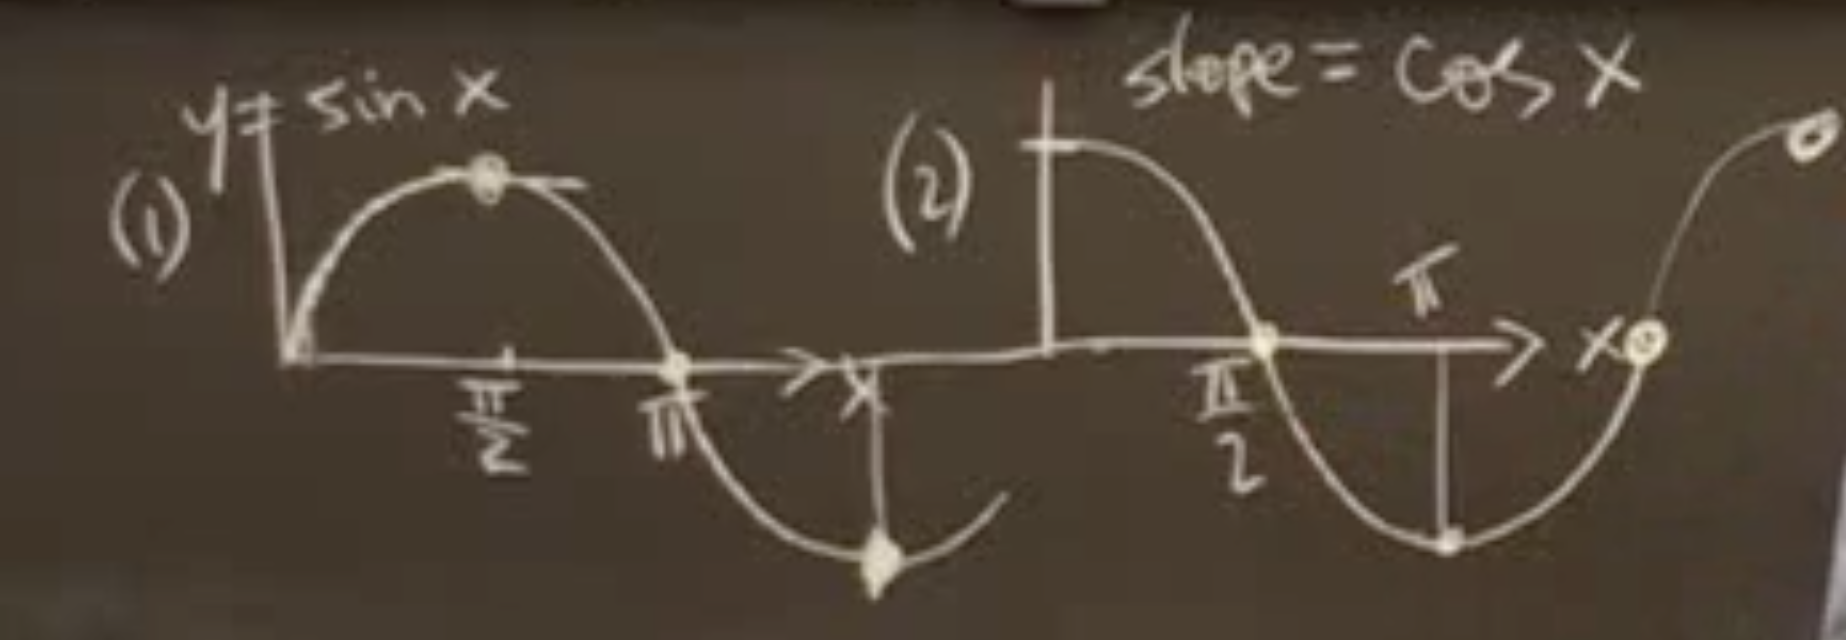 y = sin x
(1)
π/2
π
x
slope = cos x
(2)
π/2
π
x